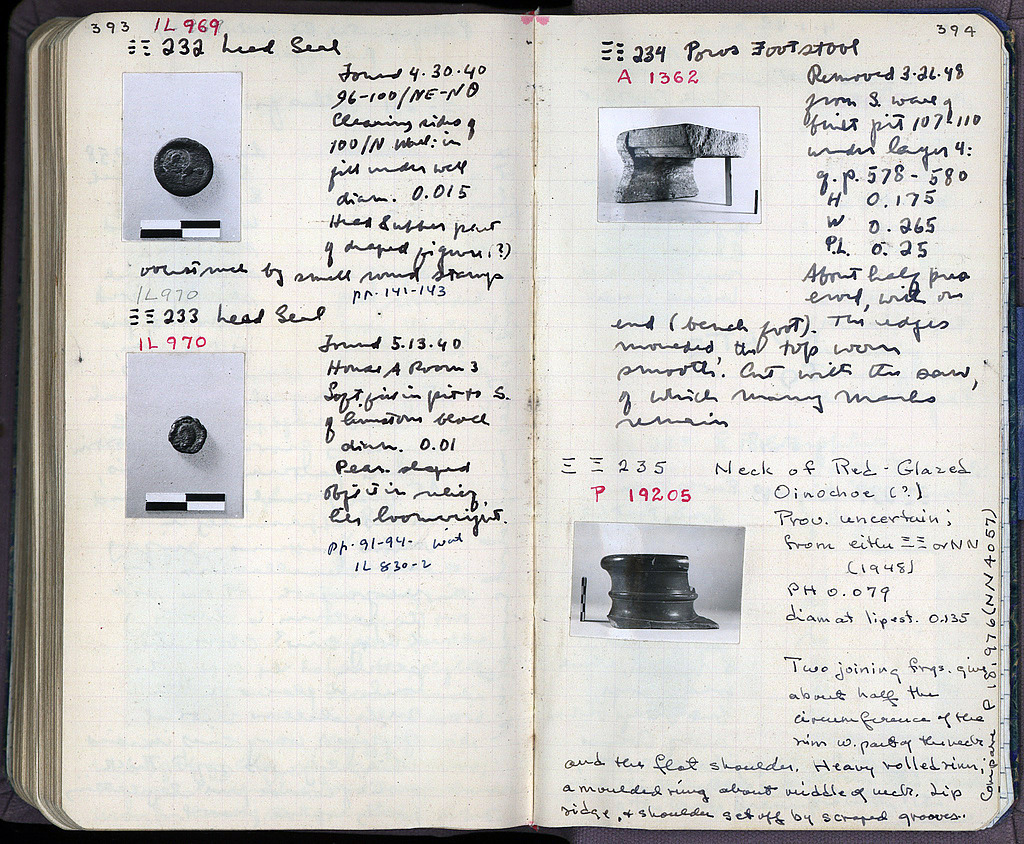 393 IL 969
ΞΞ 232 Lead Seal
Found 4.30.40
96-100/ΝΕ-ΝΘ
Clearing sides of
100/Ν Wall: in
fill under wall
diam. 0.015
Head & upper part
of draped figure (?)
by small round stamp
IL970
pp. 141-143
ΞΞ 233 Lead Seal
IL 970
Found 5.13.40
House A Room 3
Soft fill in pit to S.
of limestone block
diam. 0.01
Pear shaped
object in relief,
like loomweight.
pp. 91-94-
IL 830-2
394
ΞΞ 234 Poros Footstool
A 1362
Removed 3.26.48
from S. wall of
built pit 107-110
under layer 4:
q.p. 578-580
H 0.175
W 0.265
P.L. 0.25
About half pres
erved, with one
end (bench foot). The edges
moulded, the top worn
smooth. Cut with the saw,
of which many marks
remain
ΞΞ 235 Neck of Red-Glazed
P 19205 Oinochoe (?)
Prov. uncertain;
from either ΞΞ or NN
(1948)
PH 0.079
diam at lip est. 0.135
Two joining frgs. give
about half the
circumference of the
rim w. part of the neck
and the flat shoulder. Heavy rolled rim;
a moulded ring about middle of neck. Lip
ridge, & shoulder set off by scraped grooves.
Compare P 18,976 (NN 4057)